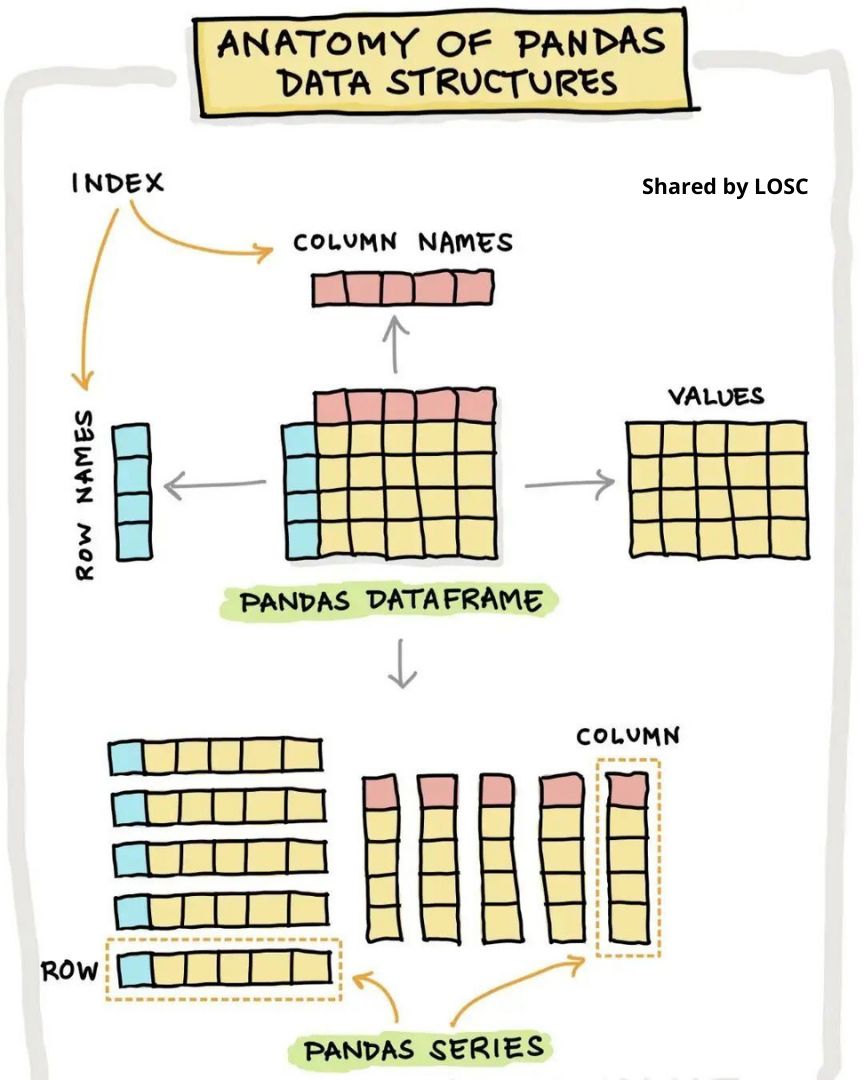 ANATOMY OF PANDAS
DATA STRUCTURES
INDEX
Shared by LOSC
COLUMN NAMES
VALUES
ROW NAMES
PANDAS DATAFRAME
COLUMN
ROW
PANDAS SERIES